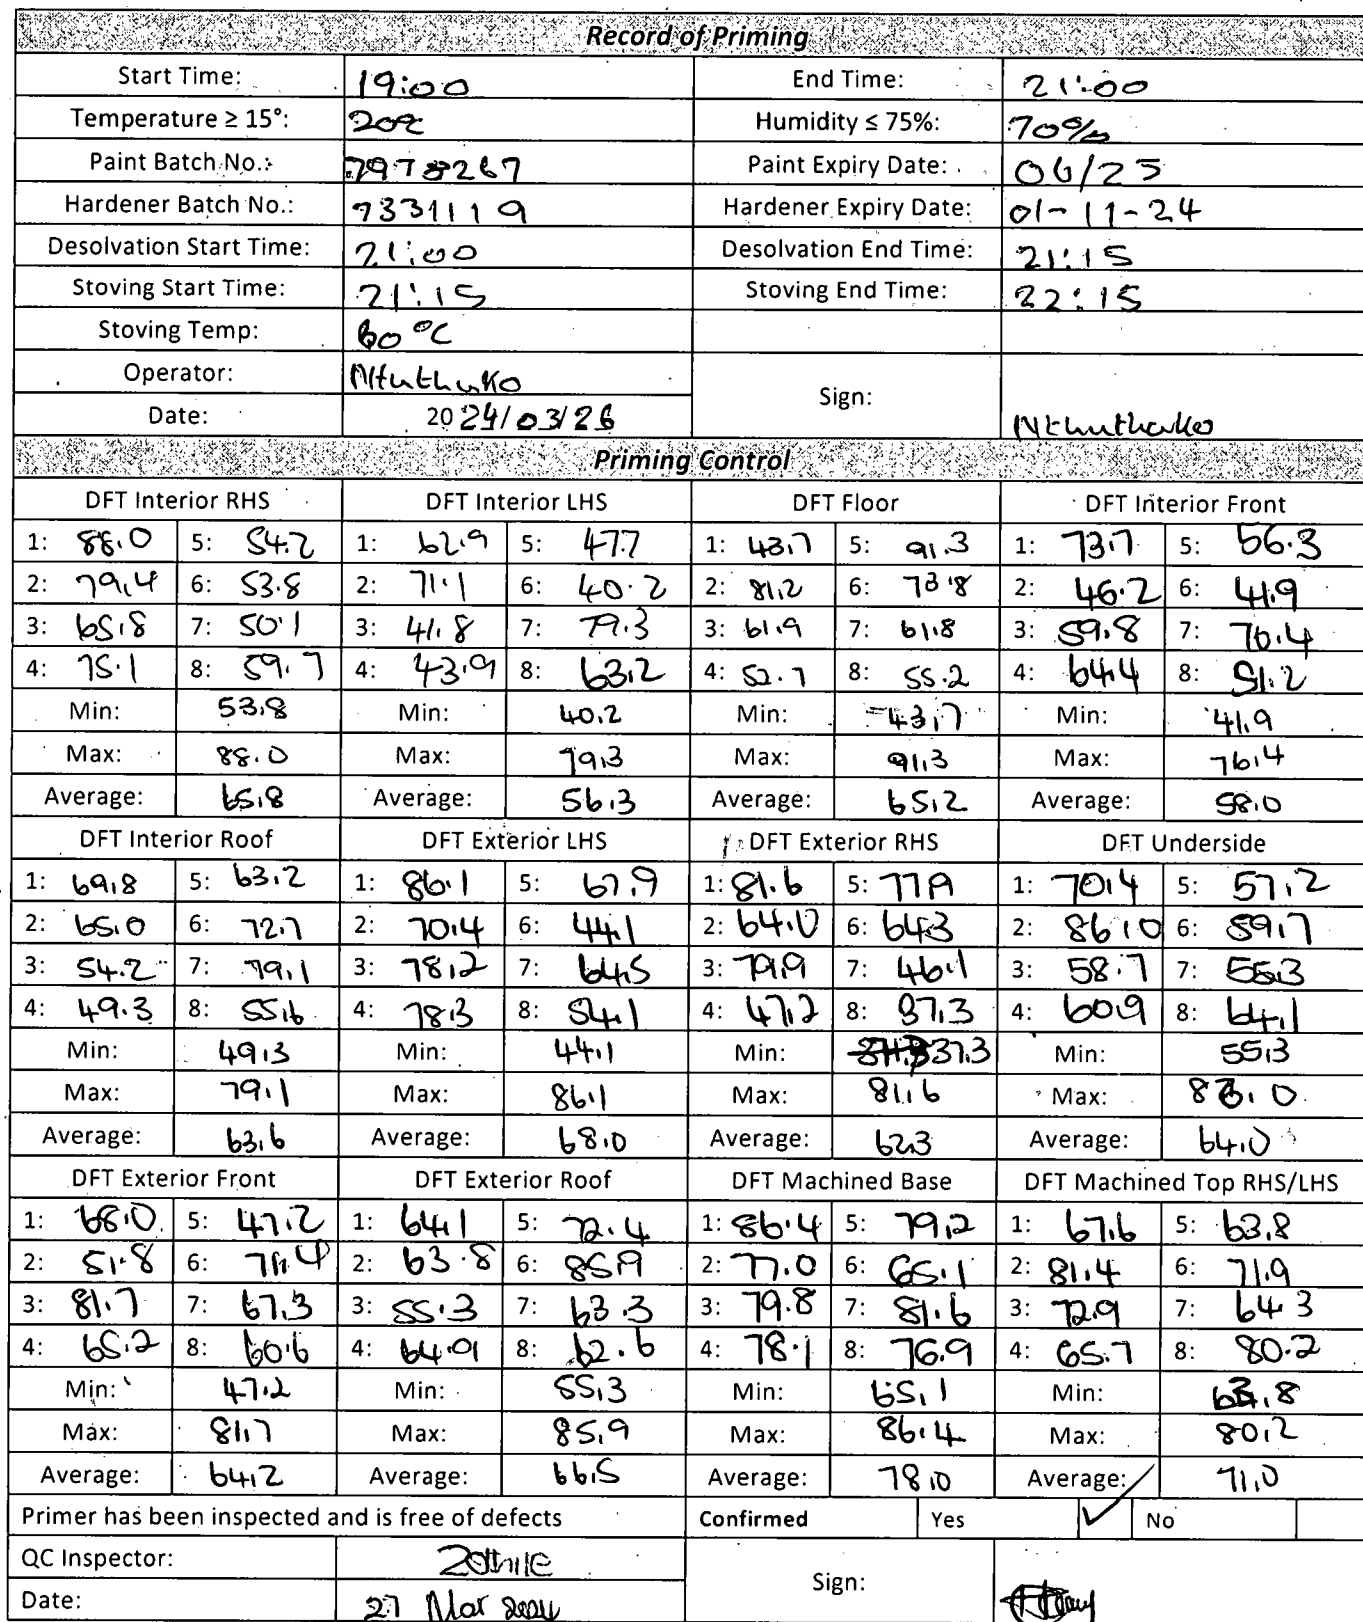 Record of Priming
Start Time: 19:00 End Time: 21:00
Temperature ≥ 15°: 20°c Humidity ≤ 75%: 70%
Paint Batch No.: 7978267 Paint Expiry Date: 06/25
Hardener Batch No.: 9331119 Hardener Expiry Date: 01-11-24
Desolvation Start Time: 21:00 Desolvation End Time: 21:15
Stoving Start Time: 21:15 Stoving End Time: 22:15
Stoving Temp: 60°C
Operator: Nthuthuko Sign: Nthuthuko
Date: 2024/03/26
Priming Control
DFT Interior RHS DFT Interior LHS DFT Floor DFT Interior Front
1: 88.0 5: 54.2 1: 62.9 5: 47.7 1: 43.7 5: 91.3 1: 73.7 5: 56.3
2: 79.4 6: 53.8 2: 71.1 6: 40.2 2: 81.2 6: 73.8 2: 46.2 6: 41.9
3: 65.8 7: 50.1 3: 41.8 7: 79.3 3: 61.9 7: 61.8 3: 59.8 7: 76.4
4: 75.1 8: 59.7 4: 43.9 8: 63.2 4: 52.7 8: 55.2 4: 64.4 8: 51.2
Min: 53.8 Min: 40.2 Min: 43.7 Min: 41.9
Max: 88.0 Max: 79.3 Max: 91.3 Max: 76.4
Average: 65.8 Average: 56.3 Average: 65.2 Average: 58.0
DFT Interior Roof DFT Exterior LHS DFT Exterior RHS DFT Underside
1: 69.8 5: 63.2 1: 86.1 5: 67.9 1: 81.6 5: 77.9 1: 70.4 5: 57.2
2: 65.0 6: 72.7 2: 70.4 6: 44.1 2: 64.0 6: 64.3 2: 86.0 6: 59.7
3: 54.2 7: 79.1 3: 78.2 7: 64.5 3: 79.9 7: 46.1 3: 58.7 7: 55.3
4: 49.3 8: 55.6 4: 78.3 8: 54.1 4: 47.2 8: 37.3 4: 60.9 8: 64.1
Min: 49.3 Min: 44.1 Min: 37.3 Min: 55.3
Max: 79.1 Max: 86.1 Max: 81.6 Max: 86.0
Average: 63.6 Average: 68.0 Average: 62.3 Average: 64.0
DFT Exterior Front DFT Exterior Roof DFT Machined Base DFT Machined Top RHS/LHS
1: 68.0 5: 47.2 1: 64.1 5: 72.4 1: 86.4 5: 79.2 1: 67.6 5: 63.8
2: 51.8 6: 71.4 2: 63.8 6: 85.9 2: 77.0 6: 65.1 2: 81.4 6: 71.9
3: 81.7 7: 67.3 3: 55.3 7: 63.3 3: 79.8 7: 81.6 3: 72.9 7: 64.3
4: 65.2 8: 60.6 4: 64.9 8: 62.6 4: 78.1 8: 76.9 4: 65.7 8: 80.2
Min: 47.2 Min: 55.3 Min: 65.1 Min: 63.8
Max: 81.7 Max: 85.9 Max: 86.4 Max: 80.2
Average: 64.2 Average: 66.5 Average: 78.0 Average: 71.0
Primer has been inspected and is free of defects Confirmed Yes ✓ No
QC Inspector: Zothile Sign:
Date: 27 Mar 2024